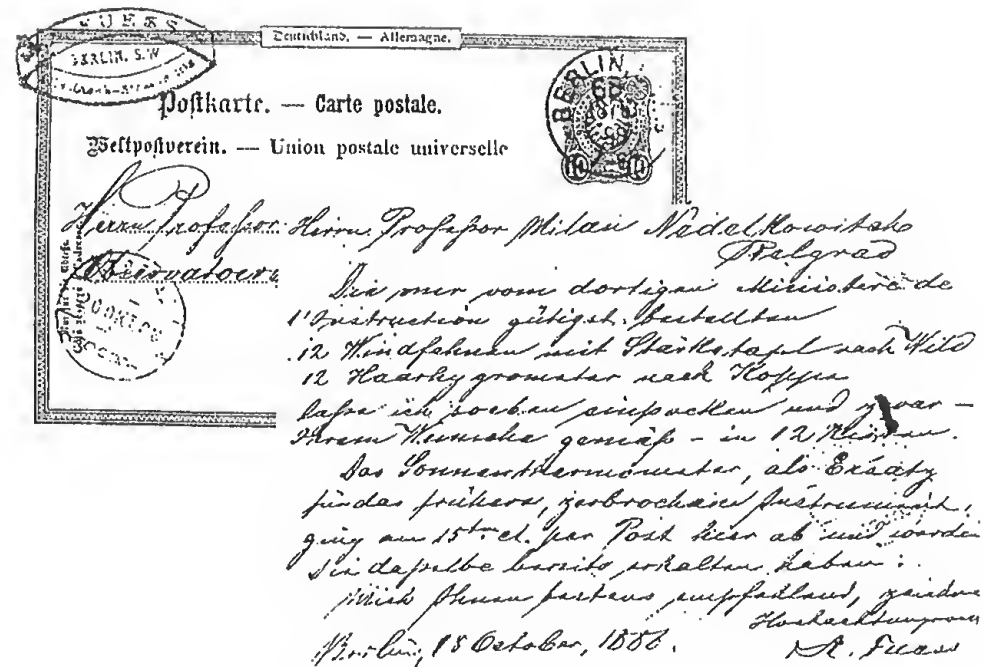 FUESS
BERLIN. S.W
Deutschland. — Allemagne.
BERLIN
Postkarte. — Carte postale.
Weltpostverein. — Union postale universelle
10 10
Herrn Professor
Observatoriu
Herrn Professor Milan Nedelkowitsch
Belgrad
Die mir vom dortigen Ministère de
l'Instruction gütigst bestellten
12 Windfahnen mit Stärketafel nach Wild
12 Haarhygrometer nach Koppe
lasse ich soeben einpacken und zwar –
Ihrem Wunsche gemäß – in 12 Kisten.
Das Sonnenthermometer, als Ersatz
für das frühere, zerbrochene Instrument,
ging am 15ten ct. per Post hier ab und werden
Sie dasselbe bereits erhalten haben.
Mich Ihnen bestens empfehlend, zeichne
Hochachtungsvoll
Berlin, 18 October, 1886.
R. Fuess